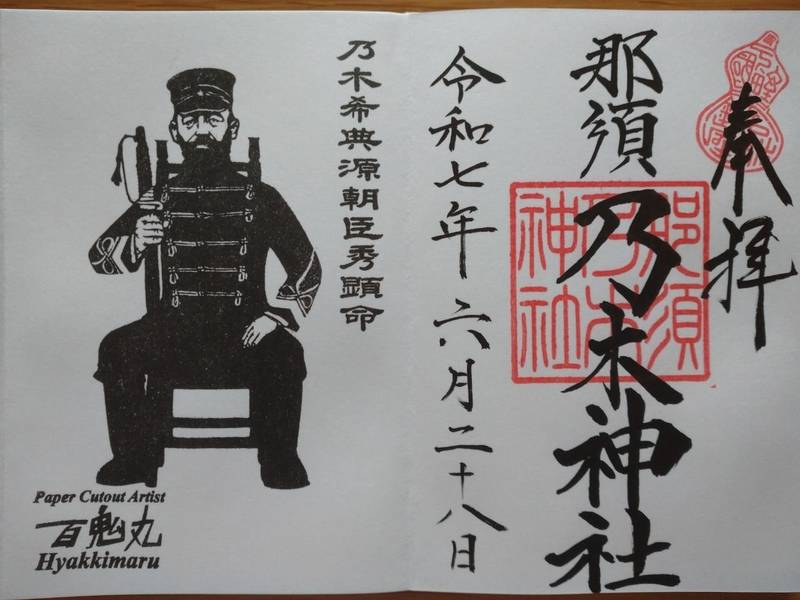 奉拝
那須乃木神社
那須
乃木
神社
令和七年六月二十八日
乃木希典源朝臣秀顕命
Paper Cutout Artist
百鬼丸
Hyakkimaru